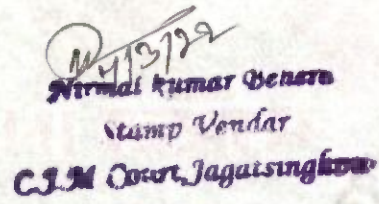 4/3/22
Nirmal kumar Behera
Stamp Vendor
C.J.M Court, Jagatsinghpur